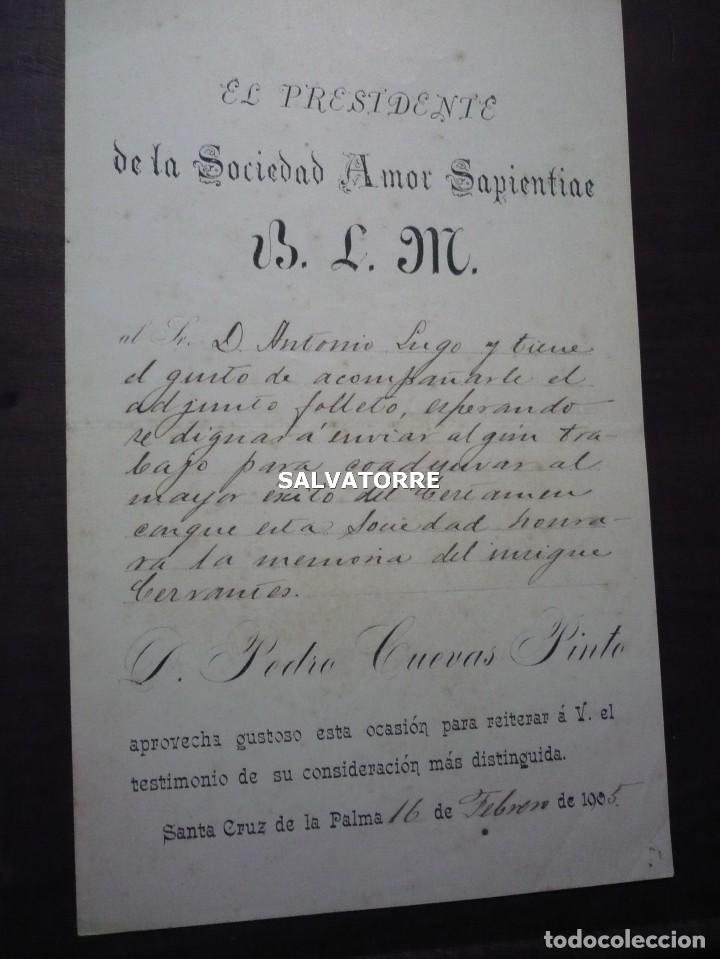 EL PRESIDENTE
de la Sociedad Amor Sapientiae
B. L. M.
al Sr. D. Antonio Lugo y tiene
el gusto de acompañarle el
adjunto folleto, esperando
se dignará enviar algún tra-
bajo para coadyuvar al
SALVATORRE
mayor exito del Certamen
conque esta Sociedad honra-
ra la memoria del insigne
Cervantes.
D. Pedro Cuevas Pinto
aprovecha gustoso esta ocasión para reiterar á V. el
testimonio de su consideración más distinguida.
Santa Cruz de la Palma 16 de Febrero de 1905.
todocoleccion